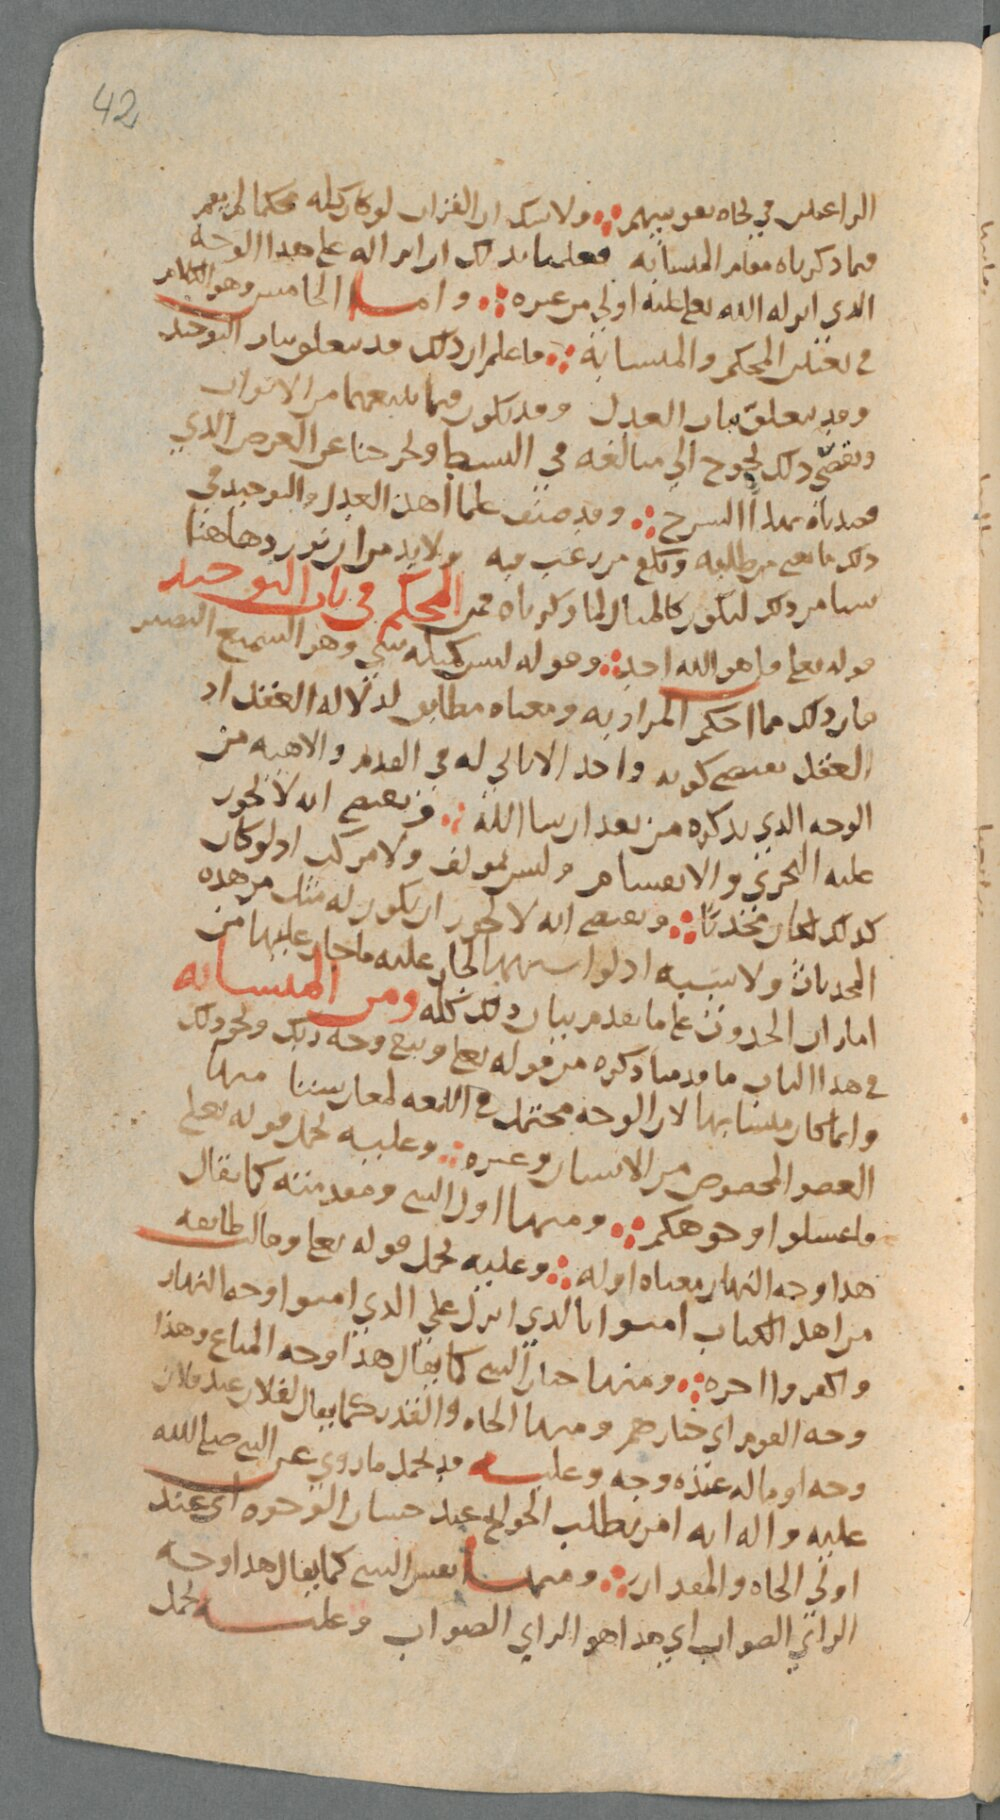 42
الراغبين في لجاه نفوسهم ∴ ولا شك ان القران لو كان كله محكما لم يقم
فيما ذكرناه مقام المتشابه فعلمنا بذلك ان انزاله على هذا الوجه
الذي انزله الله تعالى عليه اولى من غيره ∴ واما الخامس وهو الكلام
في تعيين المحكم والمتشابه ∴ فاعلم ان ذلك قد يتعلق بباب التوحيد
وقد يتعلق بباب العدل وقد يكون فيما يتبعهما من الابواب
وتقصي ذلك يحوج الى مبالغه في البسط ولخرجنا عن الغرض الذي
قصدناه بهذا الشرح ∴ وقد صنف علما اهل العدل والتوحيد في
ذلك ما يغني من طلبه ويكفي من رغب فيه ولا بد من ان نورد هاهنا
شيا من ذلك ليكون كالمثال لما ذكرناه فمن المحكم في باب التوحيد
قوله تعالى قل هو الله احد ∴ وقوله ليس كمثله شي وهو السميع البصير
فان ذلك مما احكم المراد به ومعناه مطابق لدلاله العقل اذ
العقل يقتضي كونه واحدا لا ثاني له في القدم والالهيه من
الوجه الذي نذكره من بعد ان شا الله ∴ ويقتضي انه لا يجوز
عليه التجزي والانقسام وليس بمولف ولا مركب اذ لو كان
كذلك لكان محدثا ∴ ويقتضي انه لا يجوز ان يكون له مثل من هذه
المحدثات ولا شبيه اذ لو اشبهها لجاز عليه ما جاز عليها من
امارات الحدوث على ما تقدم بيان ذلك كله ومن المتشابه
في هذا الباب ما قدمنا ذكره من قوله تعالى ويبقى وجه ربك ونحو ذلك
وانما كان متشابها لان الوجه محتمل في اللغه لمعان شتى منها
العضو المخصوص من الانسان وغيره ∴ وعليه يحمل قوله تعالى
فاغسلوا وجوهكم ∴ ومنها اول الشي ومقدمته كما يقال
هذا وجه النهار معناه اوله ∴ وعليه يحمل قوله تعالى وقالت طايفه
من اهل الكتاب امنوا بالذي انزل على الذين امنوا وجه النهار
واكفروا اخره ∴ ومنها خيار الشي كما يقال هذا وجه المتاع وهذا
وجه القوم اي خيارهم ومنها الجاه والقدر كما يقال لفلان عند فلان
وجه او ما له عنده وجه وعليه قد يحمل ما روي عن النبي صلى الله
عليه واله انه امر بطلب الحوايج عند حسان الوجوه اي عند
اولي الجاه والمقدار ∴ ومنها نفس الشي كما يقال هذا وجه
الراي الصواب اي هذا هو الراي الصواب وعليه يحمل